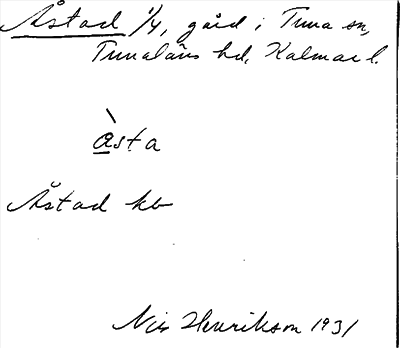 Åstad 1/4, gård i Tuna sn,
Tunaläns hd, Kalmar l.
åsta
Åstad kb
Nils Henrikson 1931